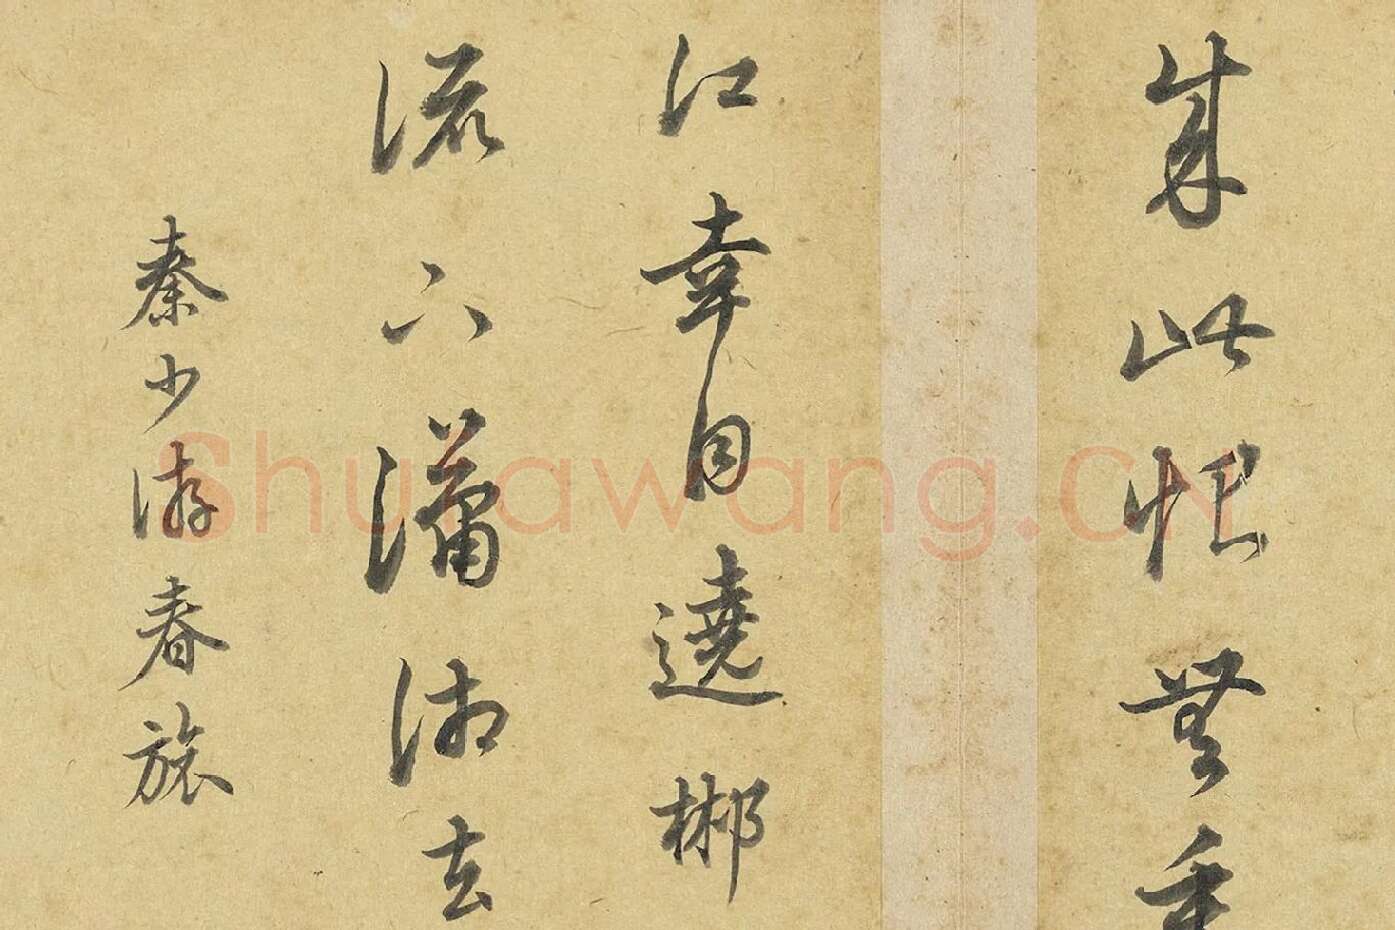 成此恨無重
江幸自遶郴
流下瀟湘去
秦少游春旅
Shufawang.CN